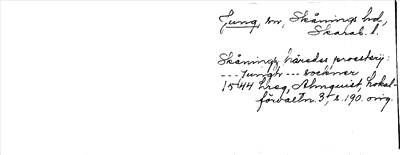 Jung, sn, Skånings hd,
Skarab. l.
Skånings härads prosteri:
--- Jungh --- sockner
1544 hreg, Almquist, Lokal-
förvaltn. 3, s. 190. orig.